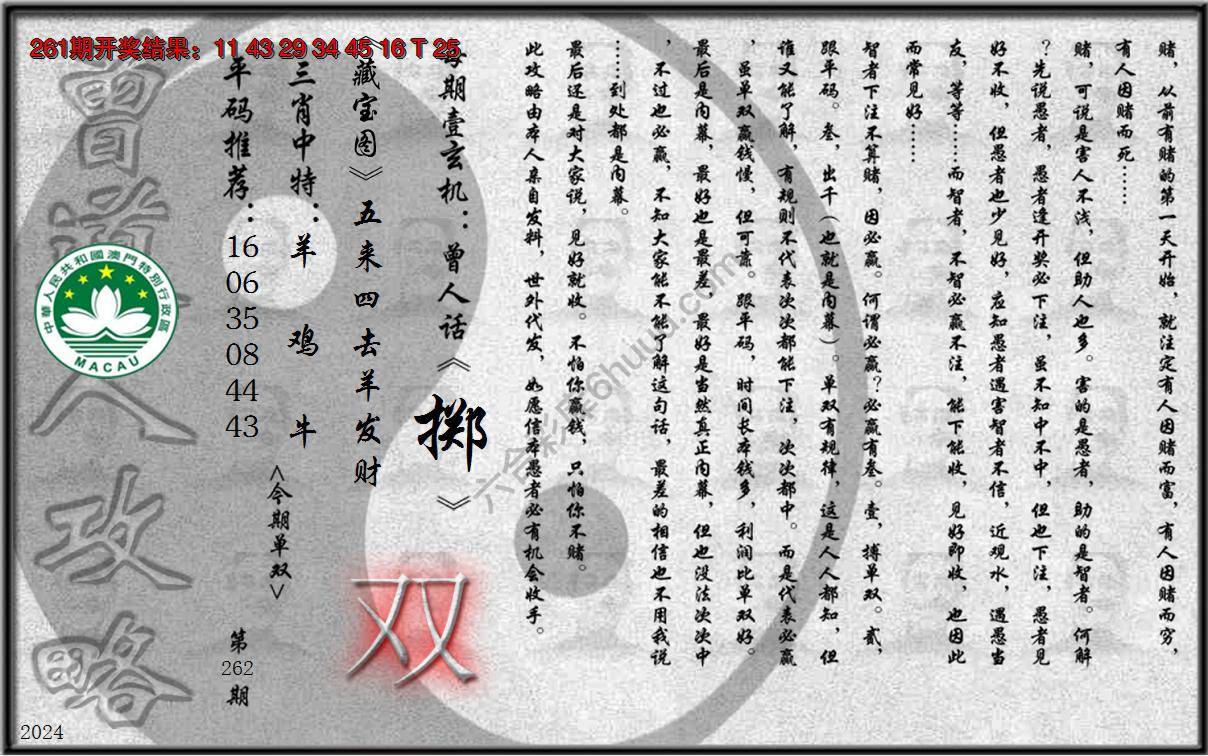 261期开奖结果：11 43 29 34 45 16 T 25
赌，从前有赌的第一天开始，就注定有人因赌而富，有人因赌而穷，
有人因赌而死……
赌，可说是害人不浅，但助人也多。害的是愚者，助的是智者。何解
？先说愚者，愚者逢开奖必下注，虽不知中不中，但也下注，愚者见
好不收，但愚者也少见好，应知愚者遇害智者不信，近观水，遇愚当
友，等等……而智者，不智必赢不注，能下能收，见好即收，也因此
而常见好……
智者下注不算赌，因必赢。何谓必赢？必赢有叁。壹，搏单双。贰，
跟平码。叁，出千（也就是内幕）。单双有规律，这是人人都知，但
谁又能了解，有规则不代表次次都能下注，次次都中。而是代表必赢
，虽单双赢钱慢，但可靠。跟平码，时间长本钱多，利润比单双好。
最后是内幕，最好也是最差，最好是当然真正内幕，但也没法次次中
，不过也必赢，不知大家能不能了解这句话，最差的相信也不用我说
……到处都是内幕。
最后还是对大家说，见好就收。不怕你赢钱，只怕你不赌。
此攻略由本人亲自发料，世外代发，如愿信本愚者必有机会收手。
每期壹玄机：曾人话《掷》
《藏宝图》五来四去羊发财
三肖中特：羊 鸡 牛
平码推荐：16 06 35 08 44 43
<今期单双>
双
第262期
曾道人攻略
中華人民共和國澳門特別行政區
MACAU
六合彩库6huuu.com
2024